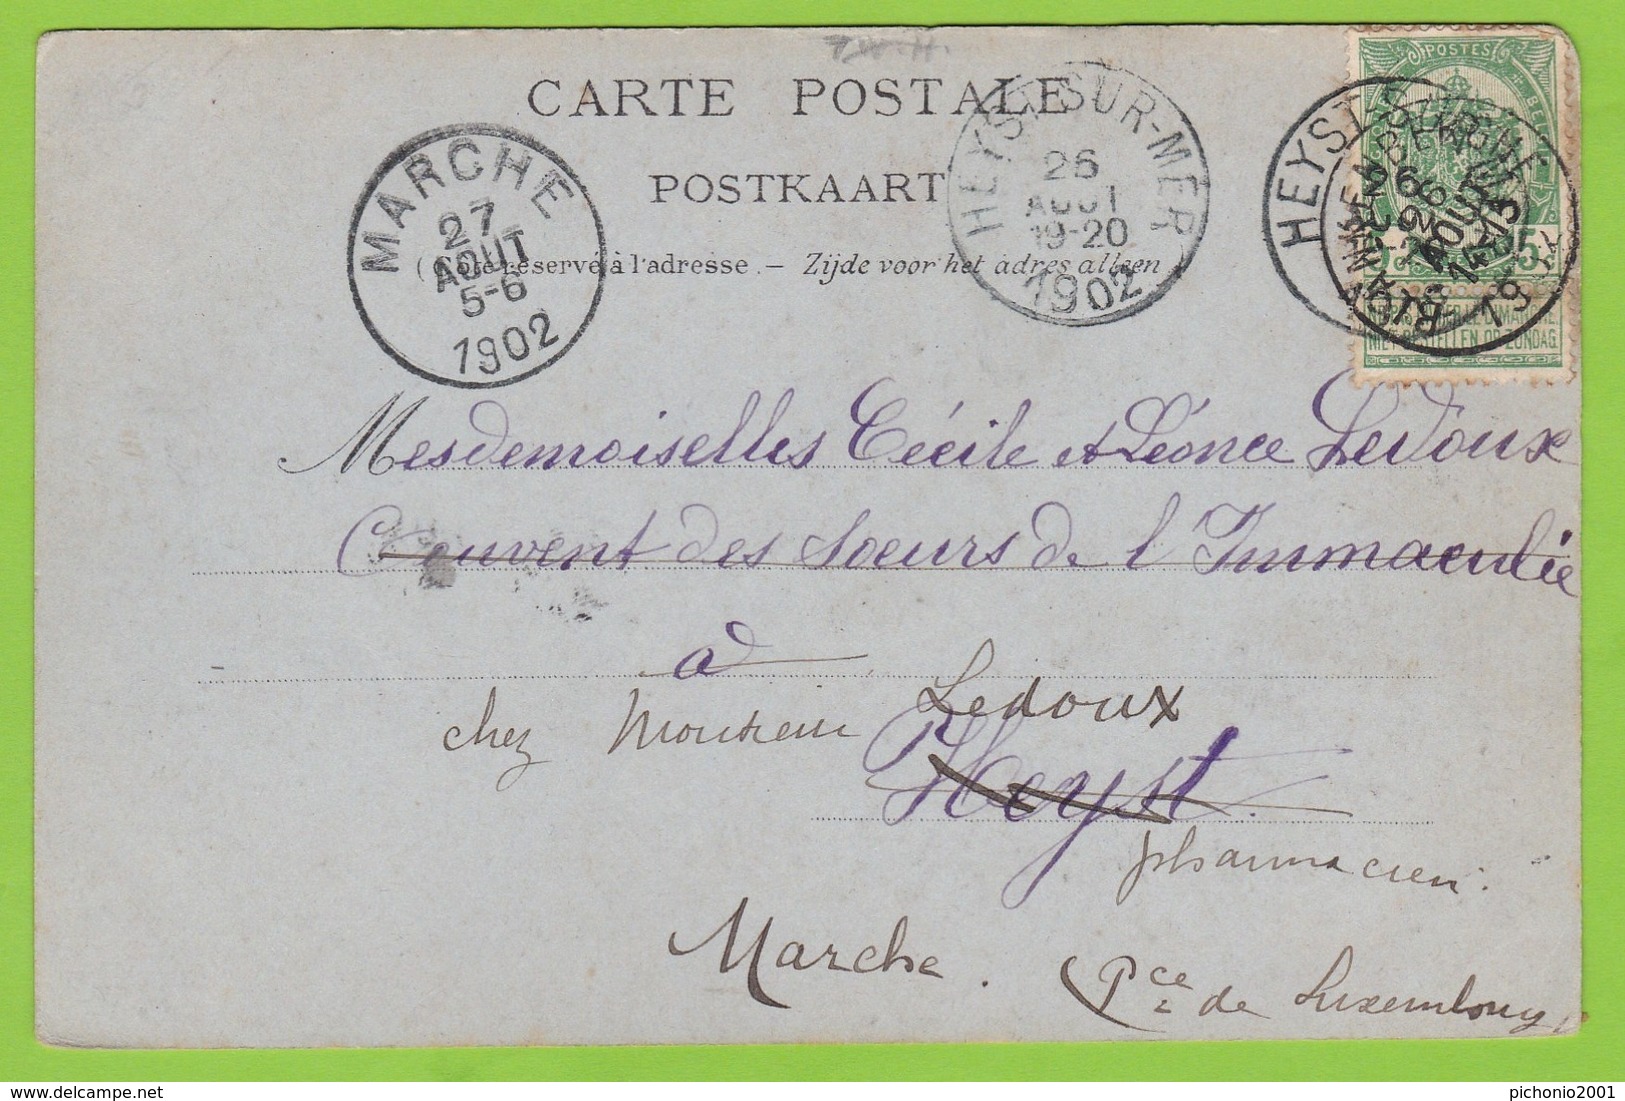 T.W.H.
CARTE POSTALE
POSTKAART
(Côté réservé à l'adresse. — Zijde voor het adres alleen
MARCHE
27
AOUT
5-6
1902
HEYST-SUR-MER
26
AOUT
19-20
1902
HEYST
POSTES
5
NIET BESTELLEN OP ZONDAG
Mesdemoiselles Cécile et Léonce Ledoux
Couvent des Soeurs de l'Immaculée
à
chez Monsieur Ledoux
Heyst.
pharmacien.
Marche. (Pce de Luxembourg)
pichonio2001